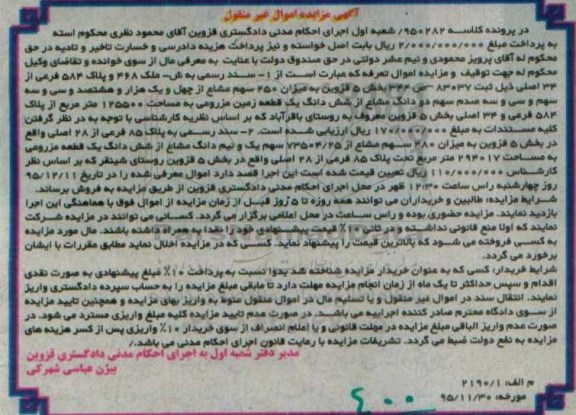 آگهی مزایده اموال غیر منقول
در پرونده کلاسه ۹۵۰۲۸۲/ شعبه اول اجرای احکام مدنی دادگستری قزوین آقای محمود نظری محکوم است
به پرداخت مبلغ ۲/۰۰۰/۰۰۰/۰۰۰ ریال بابت اصل خواسته و نیز پرداخت هزینه دادرسی و خسارت تاخیر و تادیه در حق
محکوم له آقای پرویز محمودی و نیم عشر دولتی در حق صندوق دولت با عنایت به معرفی مال از سوی خوانده و تقاضای وکیل
محکوم له جهت توقیف و مزایده اموال تعرفه که عبارت است از ۱- سند رسمی به ش- ملک ۴۶۸ و پلاک ۵۸۴ فرعی از
۳۴ اصلی ذیل ثبت ۸۳۰۳۷ ص ۳۳۴ بخش ۵ قزوین به میزان ۲۵۰ سهم مشاع از چهل و یک هزار و هشتصد و سی و سه
سهم و سی و سه صدم سهم دو دانگ مشاع از شش دانگ یک قطعه زمین مزروعی به مساحت ۱۲۵۵۰۰ متر مربع از پلاک
۵۸۴ فرعی و ۳۴ اصلی بخش ۵ قزوین معروف به روستای باقرآباد که بر اساس نظریه کارشناسی با توجه به در نظر گرفتن
کلیه مستندات به مبلغ ۱۷۰/۰۰۰/۰۰۰ ریال ارزیابی شده است. ۲- سند رسمی به پلاک ۸۵ فرعی از ۲۸ اصلی واقع
در بخش ۵ قزوین به میزان ۲۸۰ سهم مشاع از ۷۳۵۰۴/۲۵ سهم یک و نیم دانگ مشاع از شش دانگ یک قطعه مزروعی
به مساحت ۲۹۴۰۱۷ متر مربع تحت پلاک ۸۵ فرعی از ۲۸ اصلی واقع در بخش ۵ قزوین روستای شینقر که بر اساس نظر
کارشناس ۱۱۰/۰۰۰/۰۰۰ ریال تعیین قیمت شده است این اجرا قصد دارد اموال معرفی شده را در تاریخ ۹۵/۱۲/۱۱
روز چهارشنبه راس ساعت ۱۲:۳۰ ظهر در محل اجرای احکام مدنی دادگستری قزوین از طریق مزایده به فروش برساند.
شرایط مزایده: طالبین و خریداران می توانند همه روزه تا ۵ روز قبل از زمان مزایده از اموال فوق با هماهنگی این اجرا
بازدید نمایند. مزایده حضوری بوده و راس ساعت در محل اعلامی برگزار می گردد. کسانی می توانند در مزایده شرکت
نمایند که اولا منع قانونی نداشته و در ثانی ۱۰٪ قیمت پیشنهادی خود را نقدا به همراه داشته باشند. مال مورد مزایده
به کسی فروخته می شود که بالاترین قیمت را پیشنهاد نماید. کسی که در مزایده اخلال نماید مطابق مقررات با ایشان
برخورد می گردد.
شرایط خریدار: کسی که به عنوان خریدار مزایده شناخته شد بدوا نسبت به پرداخت ۱۰٪ مبلغ پیشنهادی به صورت نقدی
اقدام و سپس حداکثر تا یک ماه از زمان انجام مزایده مهلت دارد تا مابقی مبلغ مزایده را به حساب سپرده دادگستری واریز
نمایند. انتقال سند در اموال غیر منقول و یا تسلیم مال در اموال منقول منوط به واریز بهای مزایده و همچنین تایید مزایده
از سوی دادگاه محترم صادر کننده اجراییه می باشد. در صورت عدم تایید مزایده کلیه مبلغ واریزی مسترد می شود. در
صورت عدم واریز الباقی مبلغ مزایده در مهلت قانونی و یا اعلام انصراف از سوی خریدار ۱۰٪ واریزی پس از کسر هزینه های
مزایده به نفع دولت ضبط می گردد. تشریفات مزایده با رعایت قانون اجرای احکام مدنی می باشد./
مدیر دفتر شعبه اول به اجرای احکام مدنی دادگستری قزوین
بیژن عباسی شهرکی
م الف: ۲۱۹۰/۱
مورخه: ۹۵/۱۱/۳۰
۴۰۰